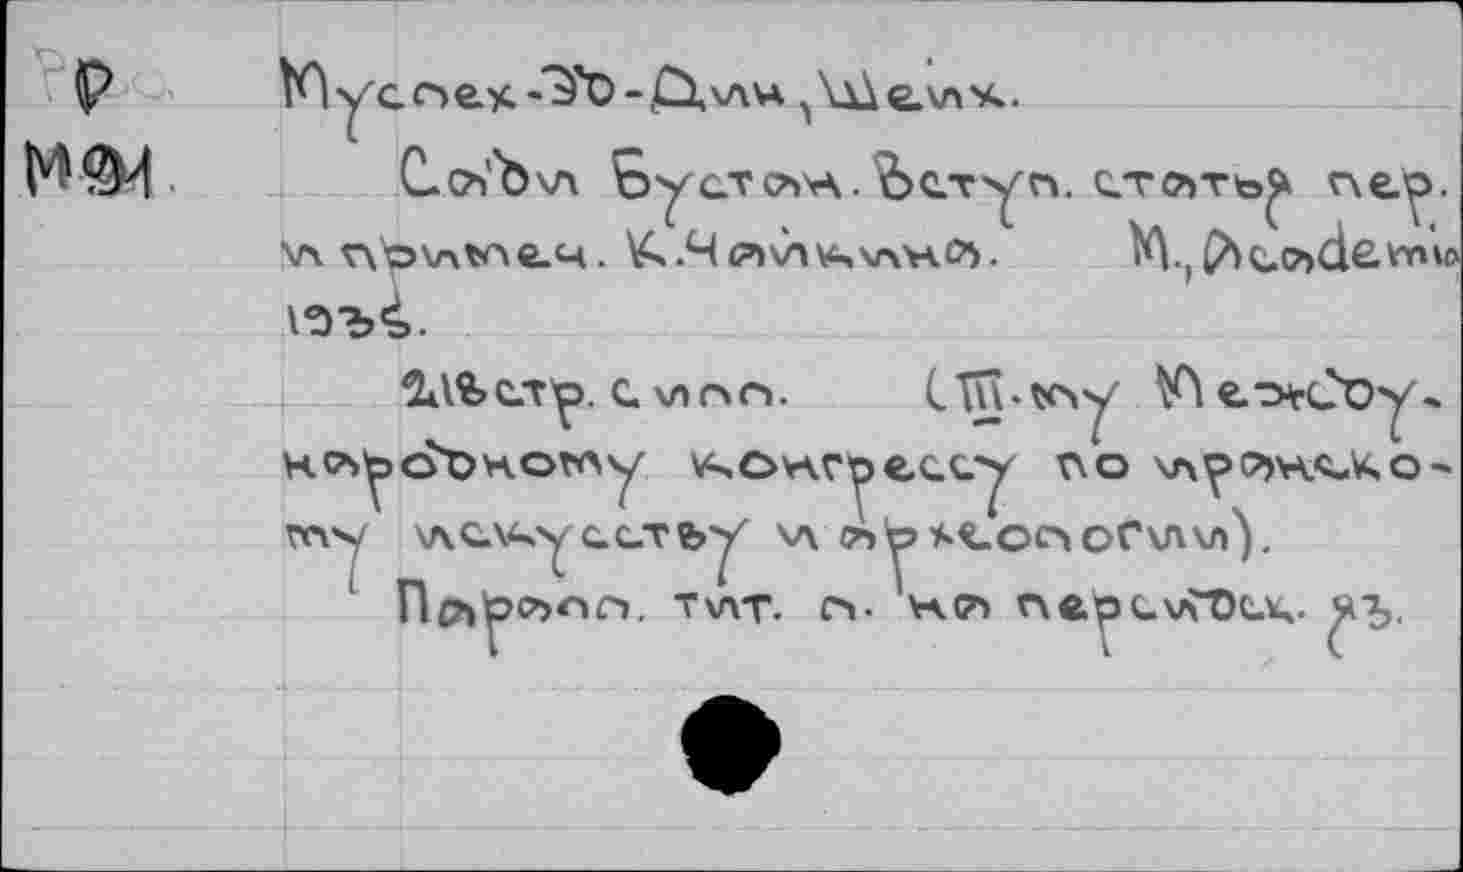 Р Муслех-Эд-Дин, Шейх.
М94. Са'ди Бустан. Вступ. статья пер.
и примеч. К.Чайкина. М., Academia
1935.
211стр. с илл. (III-му Между-
народному конгрессу по иранско-
му искусству и археологии).
Паралл. тит. л. на персидск. яз.